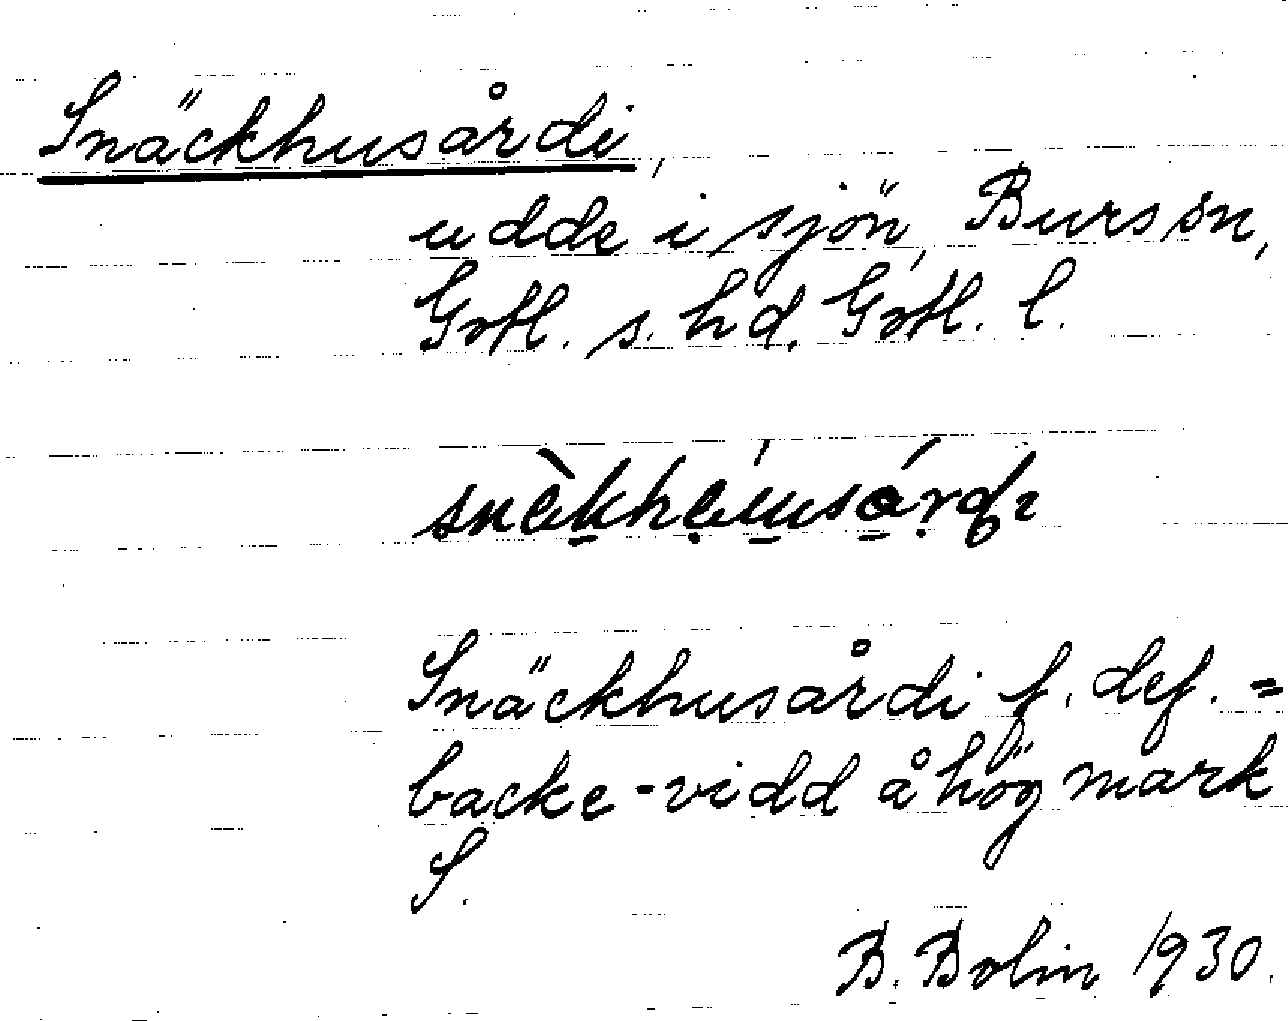 Snäckhusårdi,
udde i sjön, Burs sn,
Gotl. s. hd. Gotl. l.
Snäckhusårdi f. def. =
backe-vidd å hög mark
S.
B. Bolin 1930.